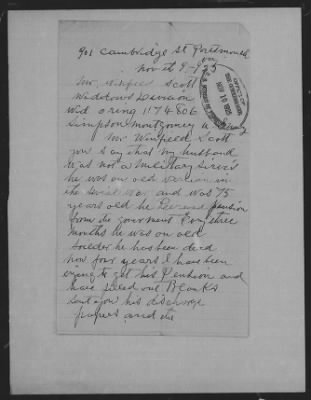 901 Cambridge St Portsmouth
Nov 9-1925
Mr. Winfield Scott
Widows Division
Wid oring 1174806
Simpson Montgomery
Mr Winfield Scott
you say that my husband
was not a Military Servis
he was an old
in the war and was 75
years old he pension
from the goverment Evry three
months he was an old
he has been dead
now four years I have been
trying to get his Pension and
have filled out Blanks
sent you his discharge
papers and